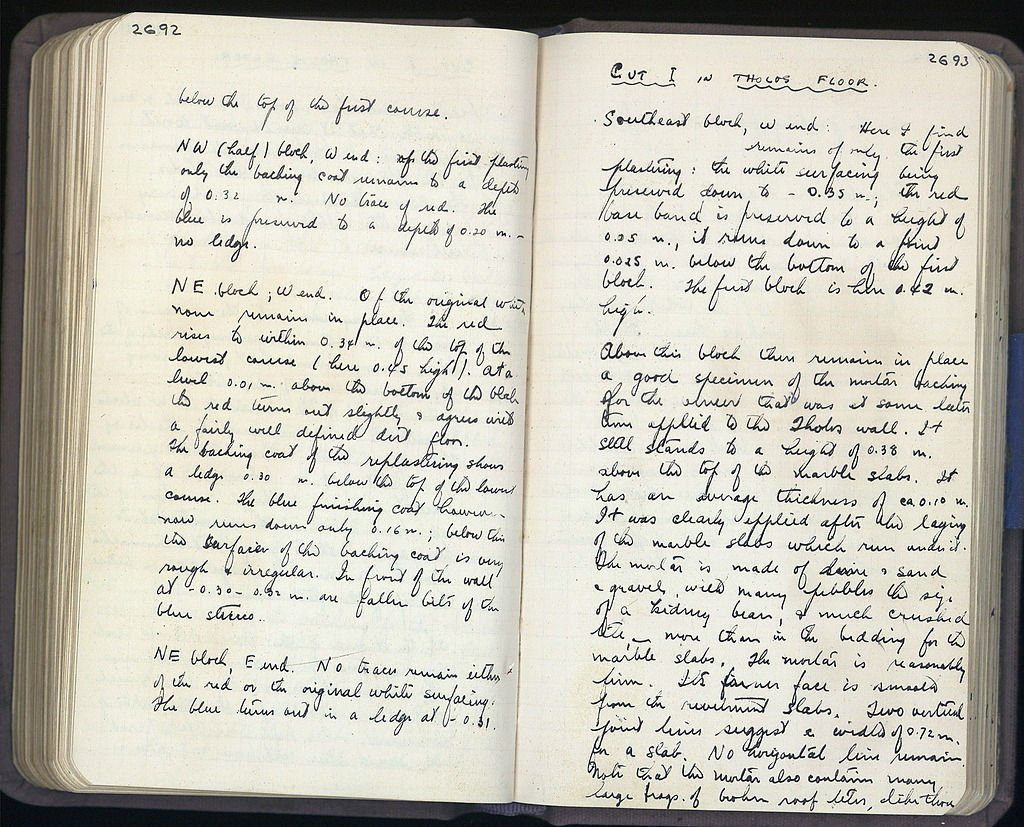 2692
below the top of the first course.
NW (half) block, W end: of the first plastering
only the backing coat remains to a depth
of 0.32 m. No trace of red. The
blue is preserved to a depth of 0.20 m. -
no ledge.
NE block, W end. Of the original white
none remains in place. The red
rises to within 0.34 m. of the top of the
lowest course (here 0.45 high). At a
level 0.01 m. above the bottom of the block
the red turns out slightly & agrees with
a fairly well defined dirt floor.
The backing coat of the replastering shows
a ledge 0.30 m. below the top of the lowest
course. The blue finishing coat however
now runs down only 0.16 m.; below this
the surface of the backing coat is very
rough & irregular. In front of the wall
at -0.30 - 0.32 m. are fallen bits of the
blue stucco.
NE block, E end. No traces remain either
of the red or the original white surfacing.
The blue turns out in a ledge at -0.31.
2693
CUT I IN THOLOS FLOOR.
Southeast block, W end: Here I find
remains of only the first
plastering: the white surfacing being
preserved down to -0.35 m.; the red
base band is preserved to a height of
0.05 m., it runs down to a point
0.025 m. below the bottom of the first
block. The first block is here 0.42 m.
high.
Above this block there remains in place
a good specimen of the mortar backing
for the veneer that was at some later
time applied to the Tholos wall. It
still stands to a height of 0.38 m.
above the top of the marble slabs. It
has an average thickness of ca 0.10 m.
It was clearly applied after the laying
of the marble slabs which run under it.
The mortar is made of lime & sand
& gravel, with many pebbles the size
of a kidney bean, & much crushed
tile - more than in the bedding for the
marble slabs. The mortar is reasonably
firm. Its face is
from the revetment slabs. Two vertical
joint lines suggest a width of 0.72 m.
for a slab. No horizontal lines remain.
Note that the mortar also contains many
large frags. of broken roof tiles, like those